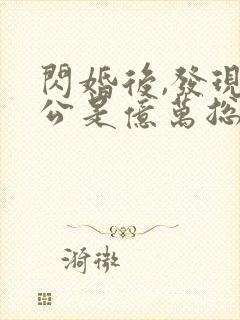 閃婚後,發現
公是億萬總
漪微